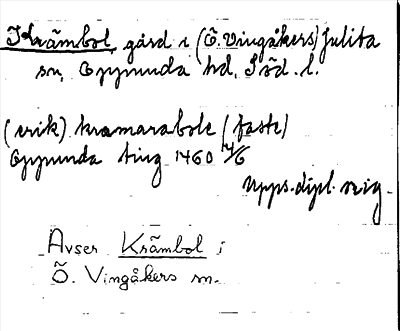 Krämbol, gård i (Ö. Vingåkers) Julita
sn, Oppunda hd, Söd. l.
(erik) kramarabole (faste)
Oppunda ting 1460 14/6
Upps. dipl. reg.
Avser Krämbol i
Ö. Vingåkers sn.